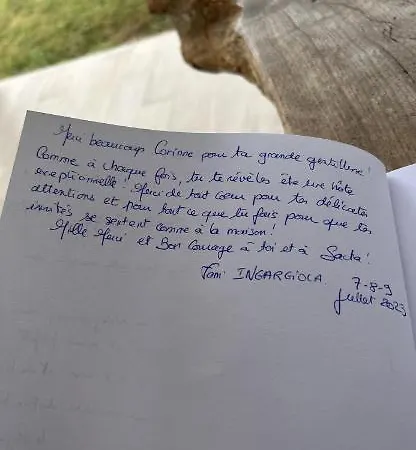 Merci beaucoup Corinne pour ta grande gentillesse !
Comme à chaque fois, tu te révèles être une hôte
exceptionnelle ! Merci de tout cœur pour tes délicates
attentions et pour tout ce que tu fais pour que tes
invités se sentent comme à la maison !
Mille Merci et Bon Courage à toi et à Sacha !
Fami INGARGIOLA
7-8-9
Juillet 2023